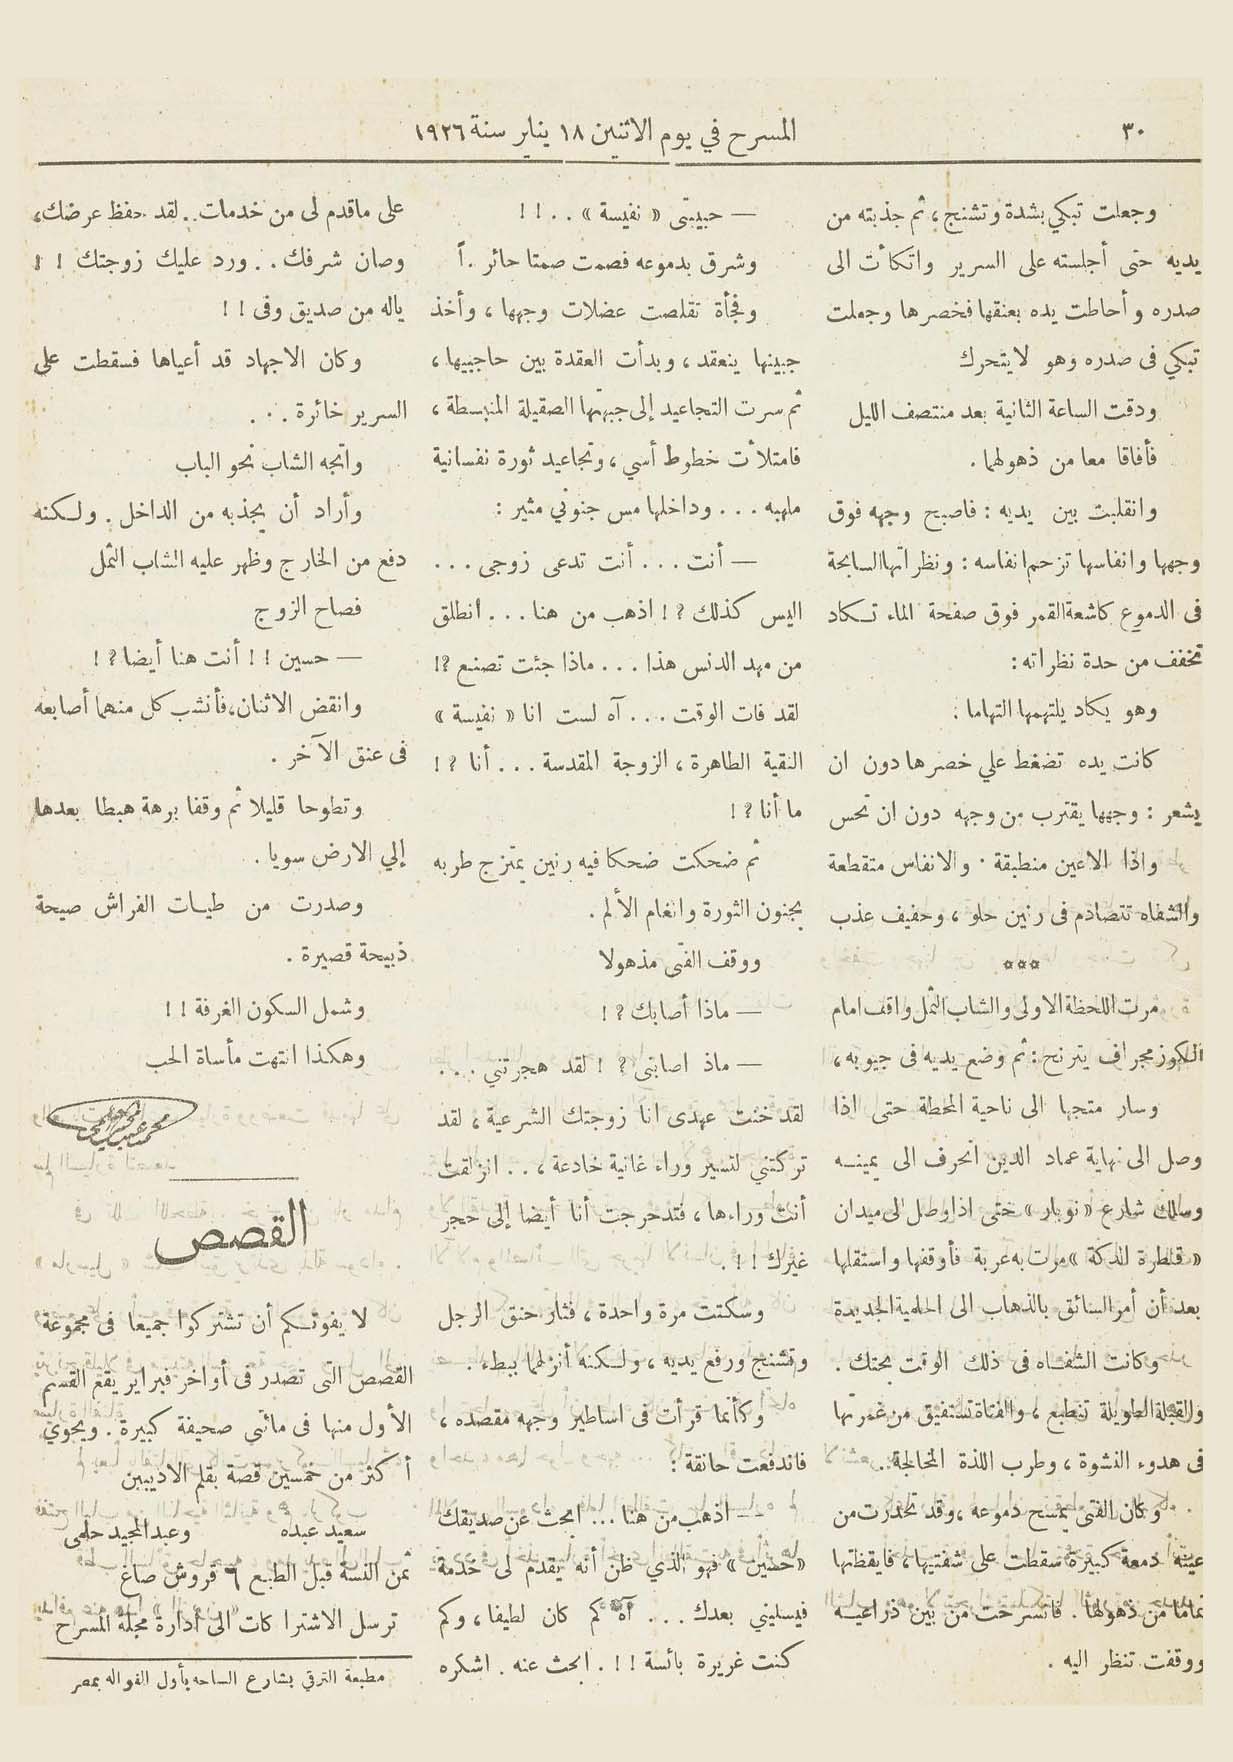 ٣٠
المسرح في يوم الاثنين ١٨ يناير سنة ١٩٢٦
وجعلت تبكي بشدة وتشنج، ثم جذبته من
يديه حتى أجلسته على السرير واتكأت الى
صدره وأحاطت يده بعنقها فخصرها وجعلت
تبكي فى صدره وهو لا يتحرك
ودقت الساعة الثانية بعد منتصف الليل
فأفاقا معا من ذهولهما.
وانقلبت بين يديه : فاصبح وجهه فوق
وجهها وانفاسها تزحم انفاسه : ونظراتها السابحة
فى الدموع كاشعة القمر فوق صفحة الماء تكاد
تخفف من حدة نظراته :
وهو يكاد يلتهمها التهاما .
كانت يده تضغط علي خصرها دون ان
يشعر : وجهها يقترب من وجهه دون ان تحس
واذا الاعين منطبقة . والانفاس متقطعة
والشفاه تتصادم فى رنين حلو ، وحفيف عذب
***
مرت اللحظة الاولى والشاب الثمل واقف امام
الكوزمجراف يترنح : ثم وضع يديه فى جيوبه ،
وسار متجها الى ناحية المحطة حتى اذا
وصل الى نهاية عماد الدين انحرف الى يمينه
وسلك شارع « نوبار » حتى اذا وصل الى ميدان
« قنطرة الدكة » مرت به عربة فأوقفها واستقلها
بعد أن أمر السائق بالذهاب الى الحلمية الجديدة
وكانت الشفاه فى ذلك الوقت تحتك .
والقبلة الطويلة تنطبع ، والفتاة تستفيق من غمرتها
فى هدوء النشوة ، وطرب اللذة المخالجة ..
وكان الفتى يمسح دموعه ، وقد تحدرت من
عينه دمعة كبيرة سقطت على شفتيها ، فايقظتها
تماما من ذهولها . فانسرحت من بين ذراعيه
ووقفت تنظر اليه .
— حبيبتى « نفيسة » . . ! !
وشرق بدموعه فصمت صمتا حائر .اً
وفجأة تقلصت عضلات وجهها ، وأخذ
جبينها ينعقد ، وبدأت العقدة بين حاجبيها ،
ثم سرت التجاعيد إلى جبهتها الصقيلة المنبسطة ،
فامتلأت خطوط أسي ، وتجاعيد ثورة نفسانية
ملهبه . . . وداخلها مس جنوني مثير :
— أنت . . . أنت تدعى زوجى . . .
اليس كذلك ؟ ! اذهب من هنا . . . انطلق
من مهد الدنس هذا . . . ماذا جئت تصنع ؟!
لقد فات الوقت . . . آه لست انا « نفيسة »
النقية الطاهرة ، الزوجة المقدسة . . . أنا ؟ !
ما أنا ؟ !
ثم ضحكت ضحكا فيه رنين يمتزج طربه
بجنون الثورة وانغام الألم .
ووقف الفتى مذهولا
— ماذا أصابك ؟ !
— ماذ اصابنى ؟ ! لقد هجرتني . . .
لقد خنت عهدى انا زوجتك الشرعية ، لقد
تركتني لتسير وراء غانية خادعة ، . . انزلقت
أنت وراءها ، فتدحرجت أنا أيضا إلى حجر
غيرك ! ! .
وسكتت مرة واحدة ، فثار حنق الرجل
وتشنج ورفع يديه ، ولكنه أنزلهما ببطء .
وكأنما قرأت فى اساطير وجهه مقصده ،
فاندفعت حانقة :
— اذهب من هنا . . . ابحث عن صديقك
« حسين » فهو الذي ظن أنه يقدم لى خدمة
فيسليني بعدك . . . آه كم كان لطيفا ، وكم
كنت غريرة بائسة ! ! . ابحث عنه . اشكره
على ماقدم لى من خدمات .. لقد حفظ عرضك ،
وصان شرفك . . ورد عليك زوجتك ! !
ياله من صديق وفى ! !
وكان الاجهاد قد أعياها فسقطت على
السرير خائرة . . .
واتجه الشاب نحو الباب
وأراد أن يجذبه من الداخل . ولكنه
دفع من الخارج وظهر عليه الشاب الثمل
فصاح الزوج
— حسين ! ! أنت هنا أيضا ؟ !
وانقض الاثنان ، فأنشب كل منهما أصابعه
فى عنق الآخر .
وتطوحا قليلا ثم وقفا برهة هبطا بعدها
إلي الارض سويا .
وصدرت من طيات الفراش صيحة
ذبيحة قصيرة .
وشمل السكون الغرفة ! !
وهكذا انتهت مأساة الحب
القصص
لا يفوتكم أن تشتركوا جميعا فى مجموعة
القصص التى تصدر فى أواخر فبراير يقع القسم
الأول منها فى مائتي صحيفة كبيرة . ويحوي
أكثر من خمسين قصة بقلم الاديبين
سعيد عبده وعبدالمجيد حلمى
ثمن النسة قبل الطبع ٦ قروش صاغ
ترسل الاشتراكات الى ادارة مجلة المسرح
مطبعة الترقي بشارع الساحه بأول الفواله بمصر